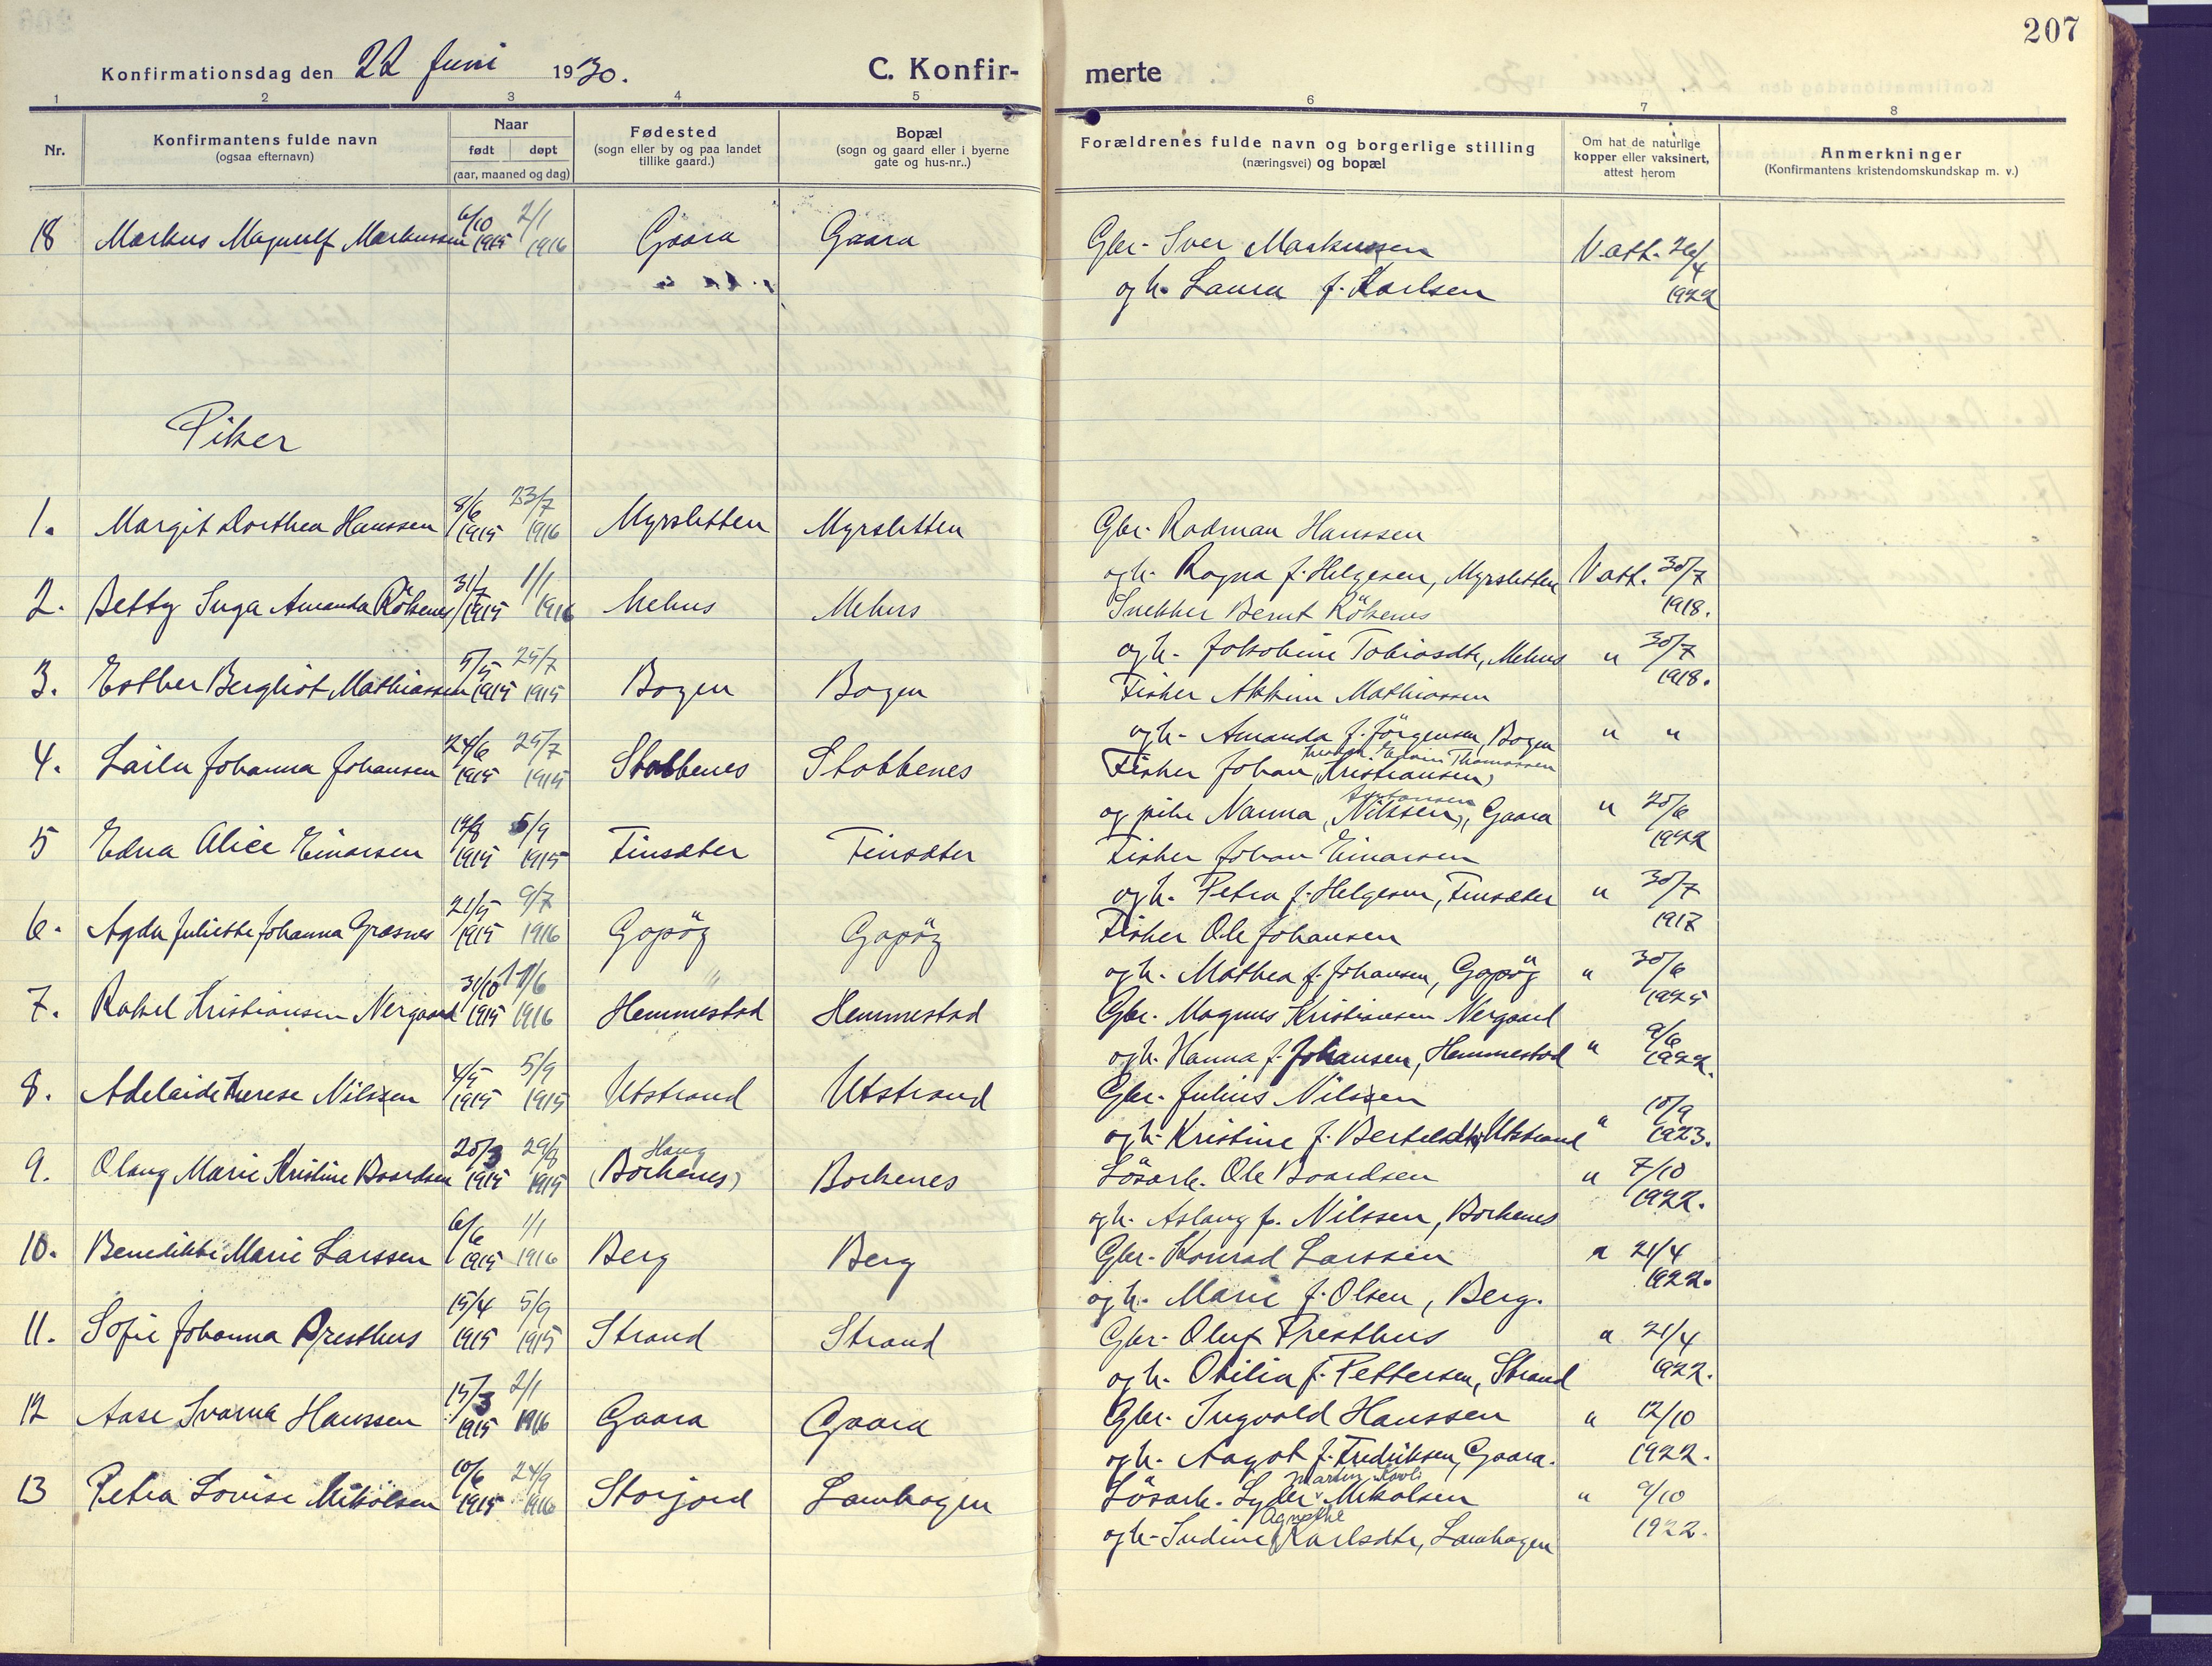 207
Konfirmationsdag den 22 Juni 1930.
C. Konfir-
merte
1 2 3 4 5 6 7 8
Nr.
Konfirmantens fulde navn
(ogsaa efternavn)
Naar
født døpt
(aar, maaned og dag)
Fødested
(sogn eller by og paa landet
tillike gaard.)
Bopæl
(sogn og gaard eller i byerne
gate og hus-nr..)
Forældrenes fulde navn og borgerlige stilling
(næringsvei) og bopæl
Om hat de naturlige
kopper eller vaksinert,
attest herom
Anmerkninger
(Konfirmantens kristendomskundskap m. v.)
18 Markus Magnulf Markussen 6/10 1915 2/1 1916 Gaara Gaara Gbr. Iver Markussen V. att. 26/4
og h. Laura f. Karlsen 1922
Piker
1. Margit Dorthea Hanssen 8/6 1915 23/7 1916 Myrsletten Myrsletten Gbr. Rodman Hanssen
og h. Ragna f. Helgesen, Myrsletten V. att. 30/7 1918.
2. Betty Inga Amanda Rökenes 31/7 1915 1/1 1916 Mehus Mehus Snekker Bernt Rökenes
og h. Jakobine Tobiasdtr, Mehus " 30/7 1918.
3. Esther Bergliot Mathiassen 5/5 1915 25/7 1915 Bogen Bogen Fisker Akkim Mathiassen
og h. Amanda f. Jörgensen, Bogen " "
4. Laila Johanna Johansen 24/6 1915 25/7 1915 Stobbenes Stobbenes Fisker Johan (Kristiansen)
Edvin Thomassen
og pike Nanna (Nilssen), Gaara " 25/6 1922
5 Edna Alice Einarsen 14/8 1915 5/9 1915 Finsæter Finsæter Fisker Johan Einarsen
og h. Petra f. Helgesen, Finsæter " 30/7 1917
6. Agda Juliette Johanna Græsnes 21/5 1915 9/7 1916 Gopöy Gopöy Fisker Ole Johansen
og h. Mathea f. Johansen, Gopöy " 30/6 1925
7. Rakel Kristiansen Nergaard 31/10 1915 11/6 1916 Hemmestad Hemmestad Gbr. Magnus Kristiansen Nergaard
og h. Hanna f. Johansen, Hemmestad " 9/6 1922.
8. Adelaide Therese Nilsen 4/5 1915 5/9 1915 Utstrand Utstrand Gbr. Julius Nilsen
og h. Kristine f. Berteldtr, Utstrand " 10/9 1923.
9. Olaug Marie Kristine Baardsen 20/3 1915 29/8 1915 Haug (Borkenes) Borkenes Lösarb. Ole Baardsen " 7/10 1922.
og h. Aslaug f. Nilssen, Borkenes
10. Benedikte Marie Larssen 6/6 1915 1/1 1916 Berg Berg Gbr. Konrad Larssen " 21/4 1922.
og h. Marie f. Olsen, Berg.
11. Sofie Johanna Presthus 15/4 1915 5/9 1915 Strand Strand Gbr. Oluf Presthus " 21/4 1922.
og h. Otilia f. Pettersen, Strand
12 Aase Ivarna Hanssen 15/3 1915 2/1 1916 Gaara Gaara Gbr. Ingvald Hanssen " 12/10 1922.
og h. Aagot f. Fredriksen, Gaara.
13 Petra Lovise Mikolsen 10/6 1915 24/9 1916 Storjord Lamhagen Lösarb. Lyder Mikalsen " 9/10 1922.
Agnethe
og h. Indine Karlsdtr, Lamhagen